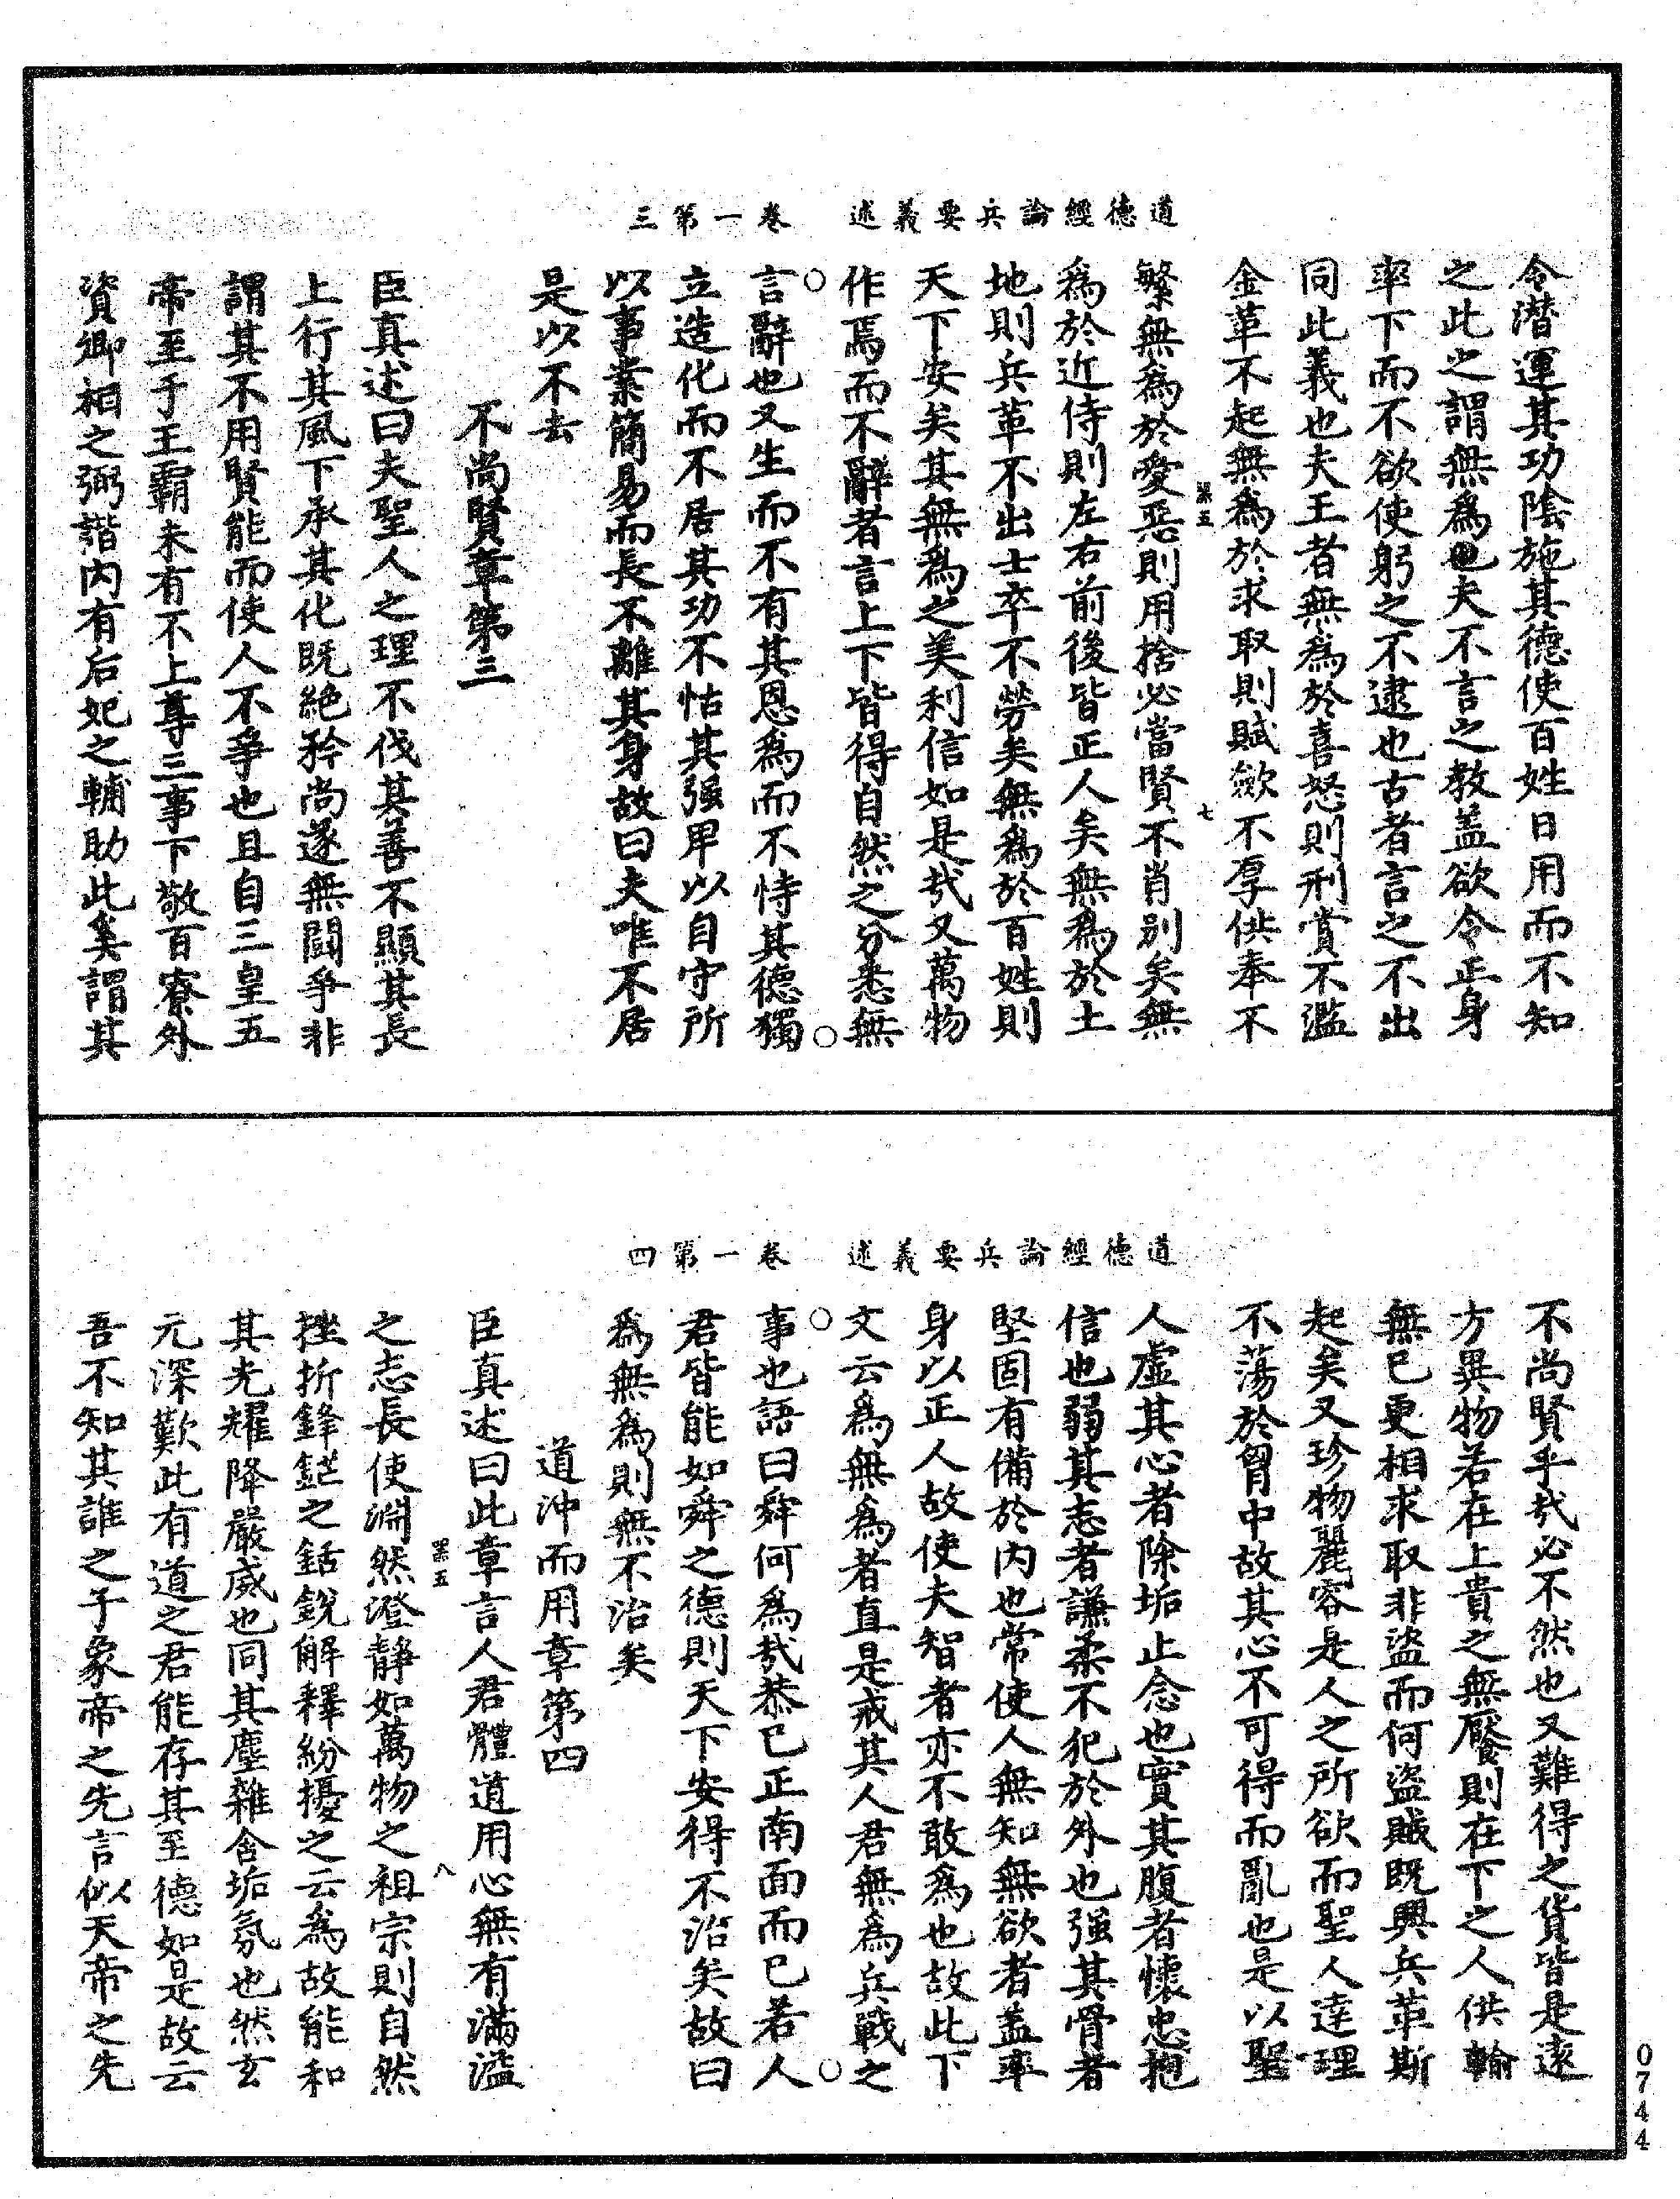 道德經論兵要義述　卷一第三
令潛運其功陰施其德使百姓日用而不知
之此之謂無為也夫不言之教蓋欲令正身
率下而不欲使躬之不逮也古者言之不出
同此義也夫王者無為於喜怒則刑賞不濫
金革不起無為於求取則賦斂不厚供奉不
繁無為於愛惡則用捨必當賢不肖別矣無
為於近侍則左右前後皆正人矣無為於土
地則兵革不出士卒不勞矣無為於百姓則
天下安矣其無為之美利信如是哉又萬物
作焉而不辭者言上下皆得自然之分悉無
言辭也又生而不有其恩為而不恃其德獨
立造化而不居其功不怙其强卑以自守所
以事業簡易而長不離其身故曰夫唯不居
是以不去
不尚賢章第三
臣真述曰夫聖人之理不伐其善不顯其長
上行其風下承其化既絕矜尚遂無鬪爭非
謂其不用賢能而使人不爭也且自三皇五
帝至于王霸未有不上尊三事下敬百寮外
資卿相之弼諧內有后妃之輔助此奚謂其
罙五
七
道德經論兵要義述　卷一第四
不尚賢乎哉必不然也又難得之貨皆是遠
方異物若在上貴之無厭則在下之人供輸
無已更相求取非盜而何盜賊既興兵革斯
起矣又珍物麗容是人之所欲而聖人達理
不蕩於胷中故其心不可得而亂也是以聖
人虛其心者除垢止念也實其腹者懷忠抱
信也弱其志者謙柔不犯於外也强其骨者
堅固有備於內也常使人無知無欲者蓋率
身以正人故使夫智者亦不敢為也故此下
文云為無為者直是戒其人君無為兵戰之
事也語曰舜何為哉恭已正南面而已若人
君皆能如舜之德則天下安得不治矣故曰
為無為則無不治矣
道沖而用章第四
臣真述曰此章言人君體道用心無有滿溢
之志長使淵然澄靜如萬物之祖宗則自然
挫折鋒鋩之銛銳解釋紛擾之云為故能和
其光耀降嚴威也同其塵雜含垢氛也然玄
元深歎此有道之君能存其至德如是故云
吾不知其誰之子象帝之先言似天帝之先
罙五
八
0744